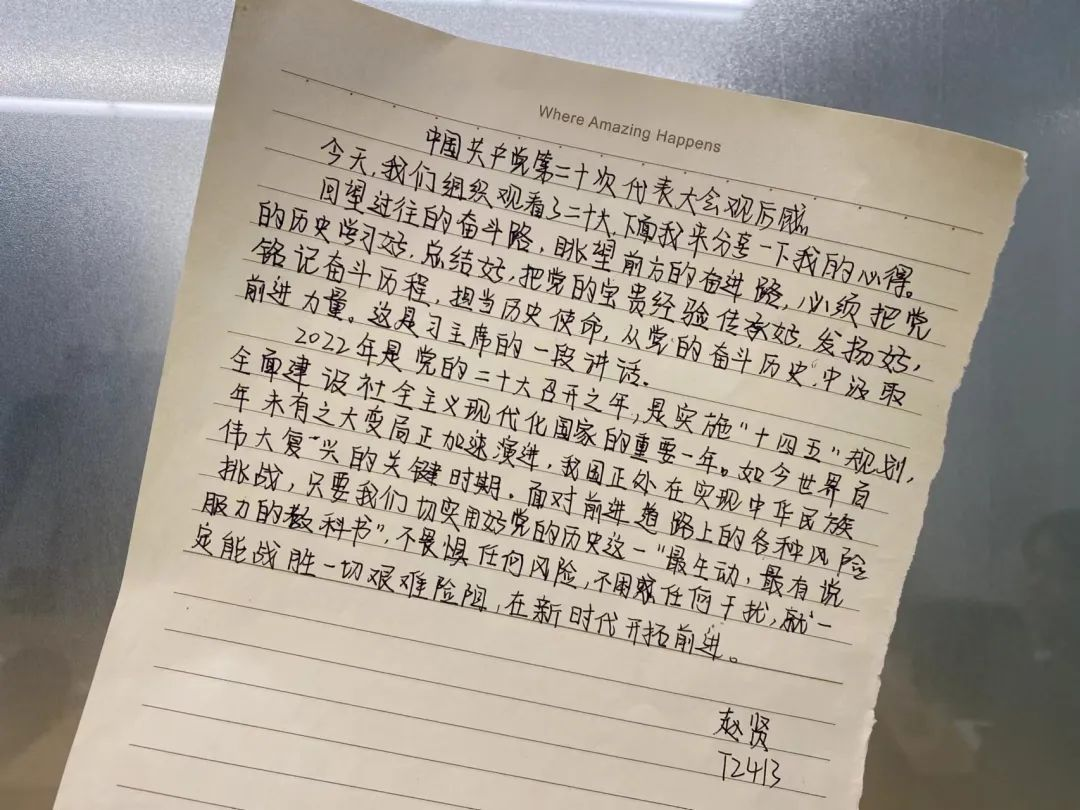 Where Amazing Happens
中国共产党第二十次代表大会观后感
今天,我们组织观看了二十大,下面我来分享一下我的心得。
回望过往的奋斗路,眺望前方的奋进路,必须把党
的历史学习好,总结好,把党的宝贵经验传承好,发扬好,
铭记奋斗历程,担当历史使命,从党的奋斗历史"中汲取
前进力量。这是习主席的一段讲话。
2022年是党的二十大召开之年,是实施“十四五”规划,
全面建设社会主义现代化国家的重要一年。如今世界百
年未有之大变局正加速演进,我国正处在实现中华民族
伟大复兴的关键时期。面对前进道路上的各种风险
挑战,只要我们切实用好党的历史这一“最生动,最有说
服力的教科书”,不畏惧任何风险,不困惑任何干扰,就一
定能战胜一切艰难险阻,在新时代开拓前进。
赵贤
T2413